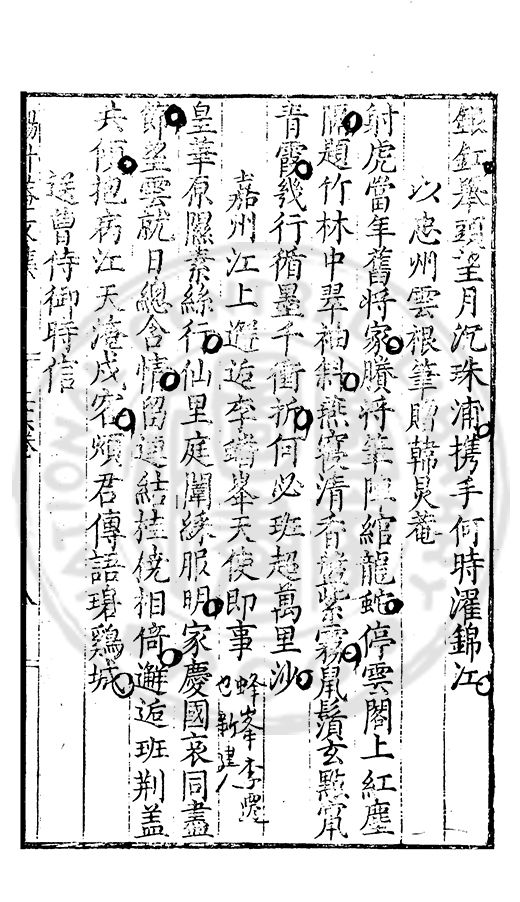 銀缸舉頭望月沉珠浦攜手何時濯錦江
以忠州雲根筆贈韓炅菴
射虎當年舊將家賸將筆陣綰龍蛇停雲閣上紅塵
隔題竹林中翠袖斜燕寢清香藹紫霧鼠鬚玄點甯
青霞幾行循墨千衝折何必班超萬里沙
嘉州江上邂逅李
峯天使即事
峰李
也新建人
皇華原隰素絲行仙里庭闈綵服明家慶國哀同盡
節望雲就日總含情留連結桂傍相倚邂逅班荊蓋
共傾抱病江天淹戍客煩君傳語
城
送曹侍御時信